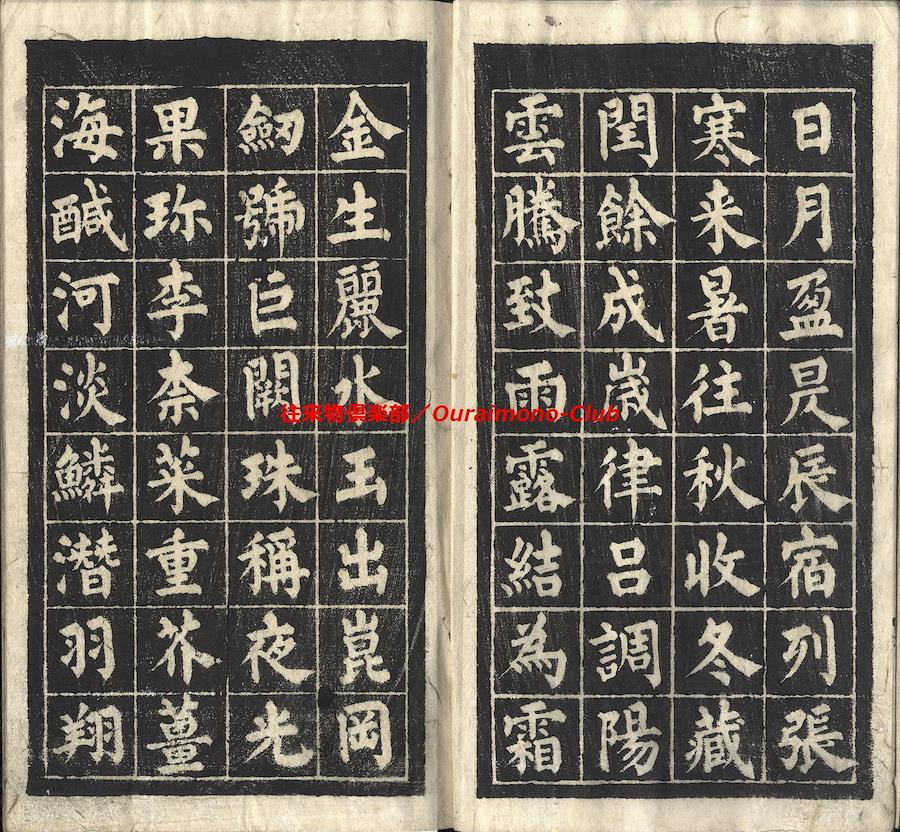 日月盈昃辰宿列張
寒来暑往秋收冬藏
閏餘成歳律呂調陽
雲騰致雨露結為霜
金生麗水玉出崑岡
劔號巨闕珠稱夜光
果珎李柰菜重芥薑
海醎河淡鱗潛羽翔
往来物倶楽部／Ouraimono-Club